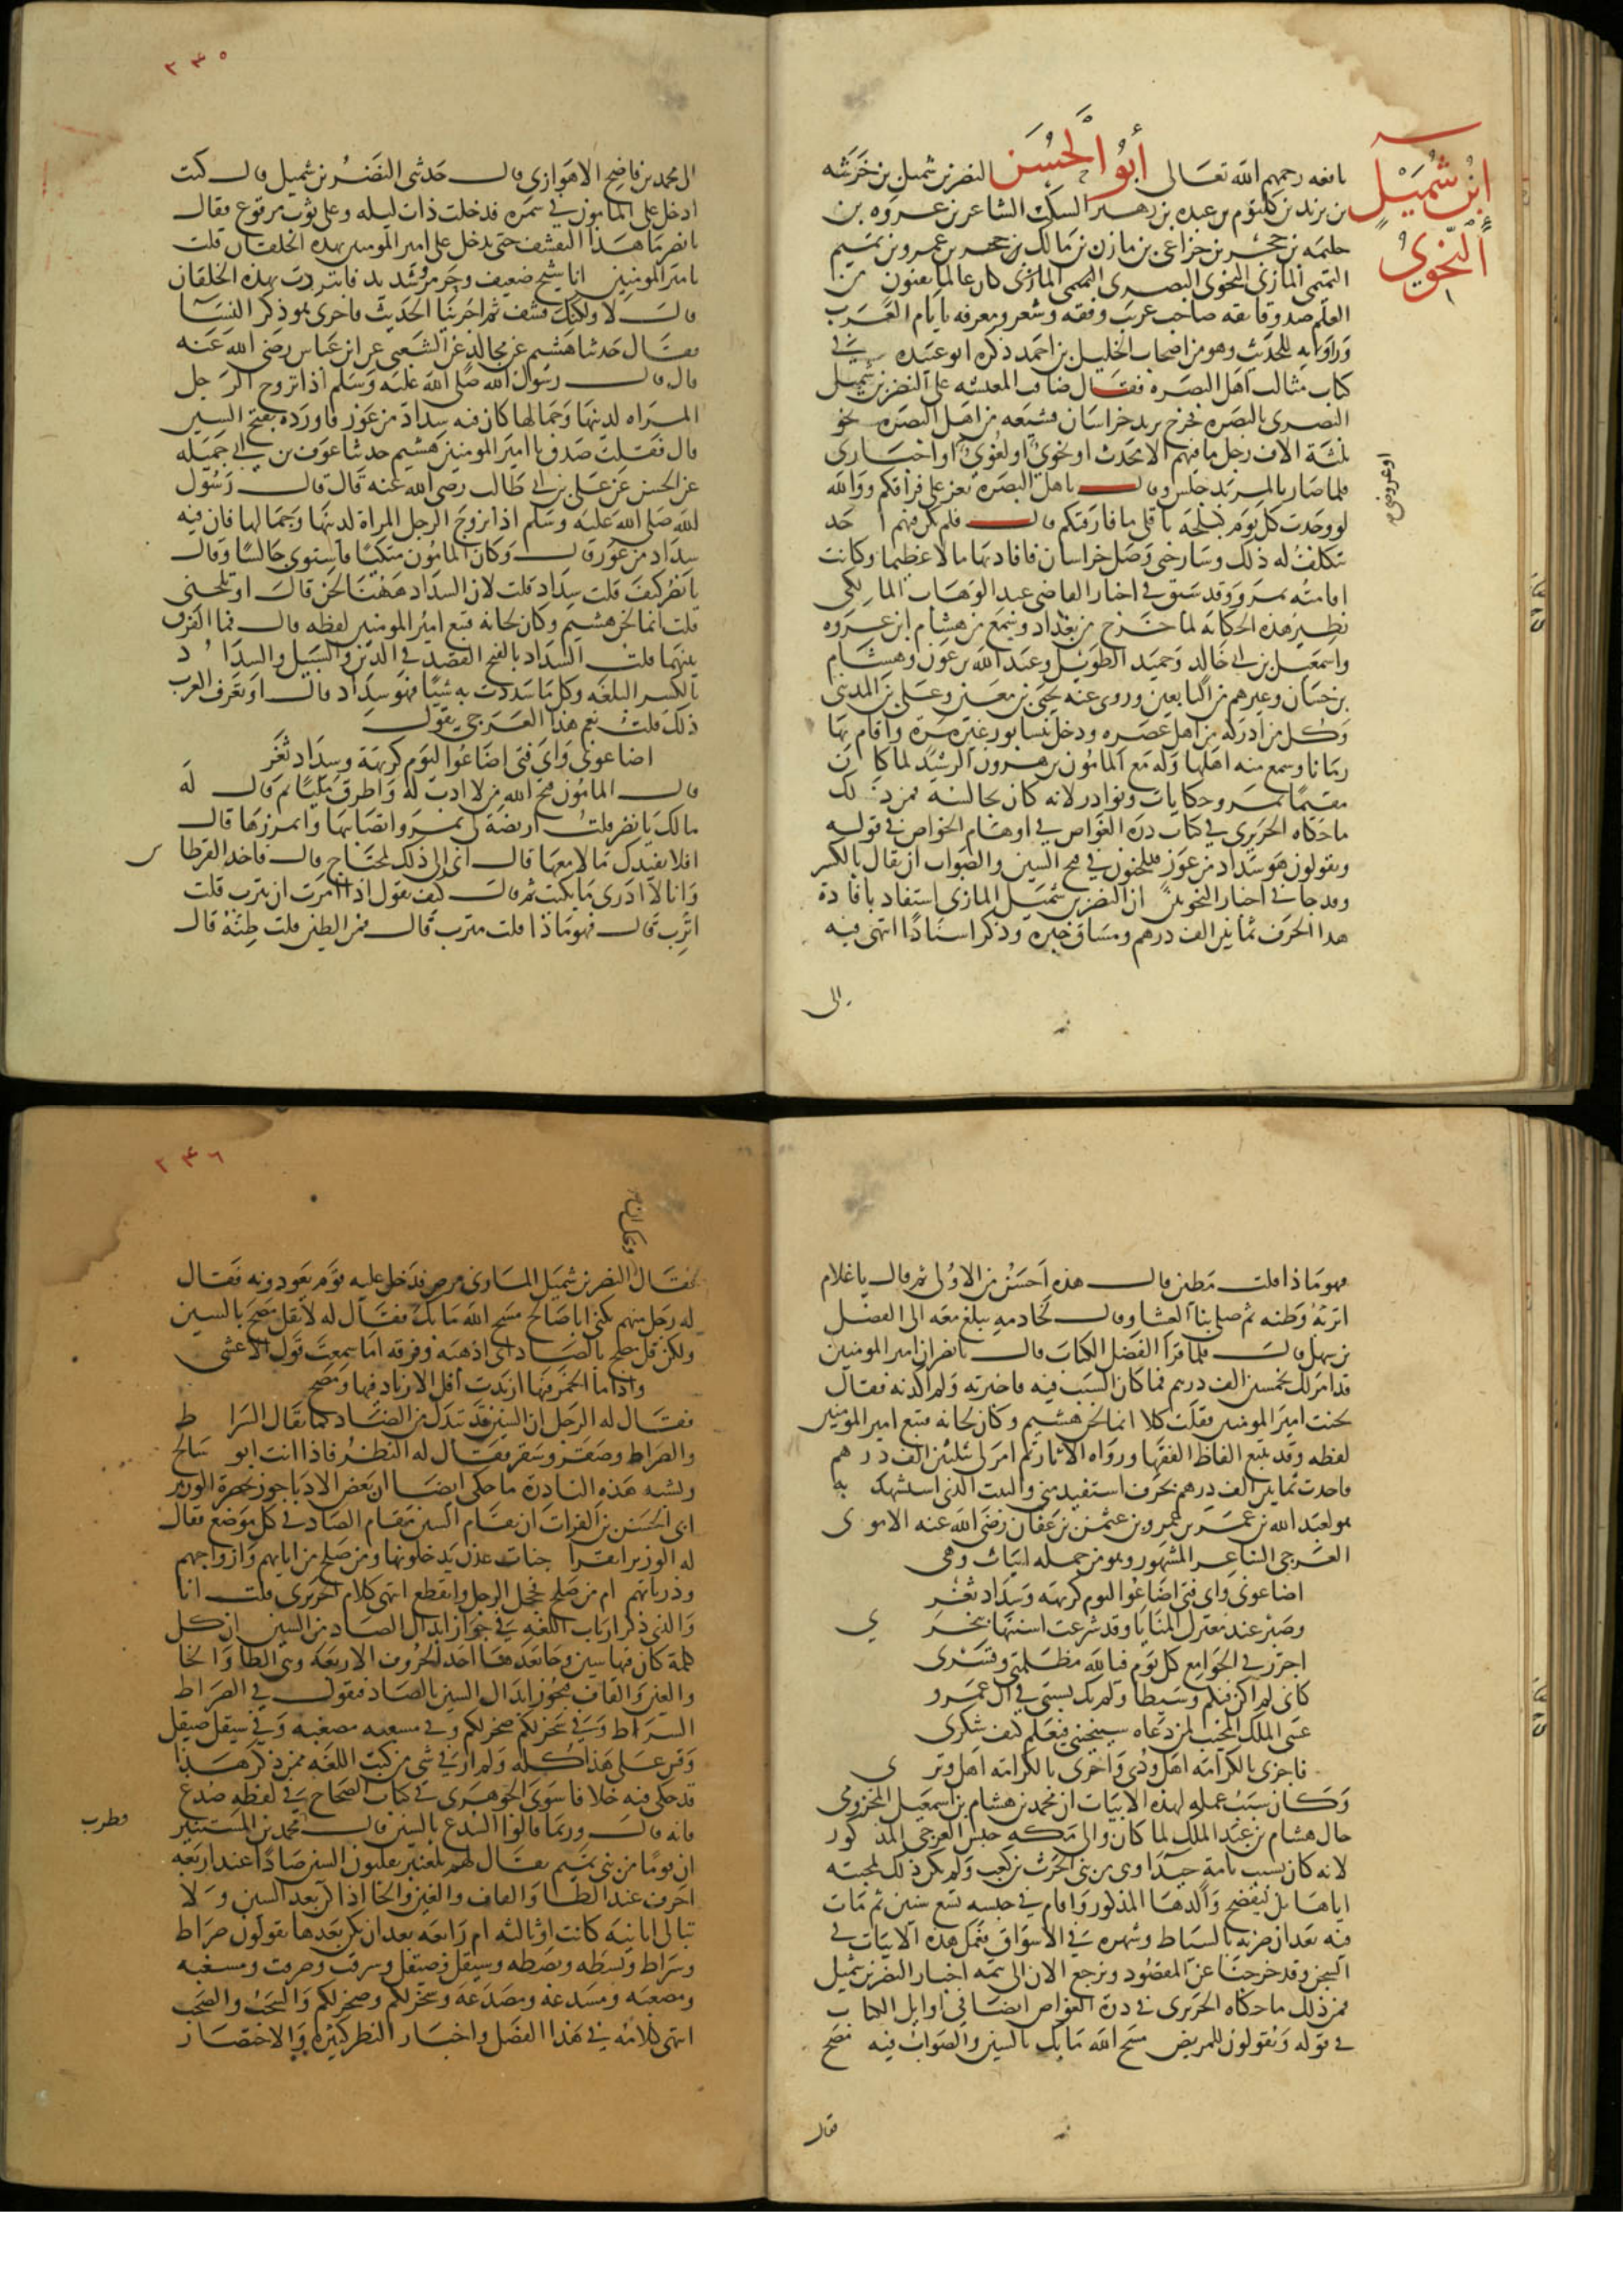 ابن شميل
النحوي
نافعه رحمهم الله تعالى أبو الحسن النضر بن شميل بن خرشه
بن يزيد بن كلثوم بن عبده بن زهير السكب الشاعر بن عروه بن
حليمه بن حجر بن خزاعي بن مازن بن مالك بن عمرو بن تميم
التميمي المازني النحوي البصري كان عالما بفنون من
العلم صدوقا ثقه صاحب غريب وفقه وشعر ومعرفه بايام العرب
وروايه للحديث وهو من اصحاب الخليل بن احمد ذكره ابو عبيده في
كتاب مثالب اهل البصره فقال ضاقت المعيشه على النضر بن شميل
البصري بالبصره فخرج يريد خراسان فشيعه من اهل البصره نحو
ثلثة الاف رجل ما فيهم الا محدث او نحوي او لغوي او اخباري
او عروضي
فلما صار بالمربد جلس وقال يا اهل البصره يعز علي فراقكم ووالله
لو وجدت كل يوم كيلجه باقلى ما فارقتكم قال فلم يكن فيهم احد
تتكلف له ذلك وسار حتى وصل خراسان فافاد بها مالا عظيما وكانت
اقامته بمرو وقد سبق في اخبار القاضي عبد الوهاب المالكي
نظير هذه الحكايه لما خرج من بغداد وسمع من هشام ابن عروه
واسمعيل بن ابي خالد وحميد الطويل وعبد الله بن عون وهشام
بن حسان وغيرهم من التابعين وروى عنه يحيى بن معين وعلي بن المديني
وكل من ادركه من اهل عصره ودخل نيسابور غير مرة واقام بها
زمانا وسمع منه اهلها وله مع المامون بن هرون الرشيد لما كان
مقيما بمرو حكايات ونوادر لانه كان يجالسه فمن ذلك
ما حكاه الحريري في كتاب درة الغواص في اوهام الخواص في قوله
ويقولون هو سداد من عوز فيلحنون في فتح السين والصواب ان يقال بالكسر
وقد جا في اخبار النحويين ان النضر بن شميل المازني استفاد بافادة
هذا الحرف ثمانين الف درهم ومساق خبره وذكر اسنادا انتهى فيه
الى
٢٣٥
الى محمد بن ناصح الاهوازي قال حدثني النضر بن شميل قال كنت
ادخل على المامون في سمره فدخلت ذات ليله وعلي ثوب مرقوع فقال
يا نضر ما هذا التقشف حتى تدخل على امير المومنين بهذه الخلقان قلت
يا امير المومنين انا شيخ ضعيف وحر مرو شديد فاتبرد بهذه الخلقان
قال لا ولكنك قشف ثم اجرينا الحديث فاجرى هو ذكر النسا
فقال حدثنا هشيم عن مجالد عن الشعبي عن ابن عباس رضي الله عنه
قال قال رسول الله صلى الله عليه وسلم اذا تزوج الرجل
المراه لدينها وجمالها كان فيه سداد من عوز فاورده بفتح السين
قال فقلت صدق يا امير المومنين هشيم حدثنا عوف بن ابي جميله
عن الحسن عن علي بن ابي طالب رضي الله عنه قال قال رسول
الله صلى الله عليه وسلم اذا تزوج الرجل المراة لدينها وجمالها كان فيه
سداد من عوز قال وكان المامون متكيا فاستوى جالسا وقال
يا نضر كيف قلت سداد قلت لان السداد ههنا لحن قال او تلحنني
قلت انما لحن هشيم وكان لحانه فتبع امير المومنين لفظه قال فما الفرق
بينهما قلت السداد بالفتح القصد في الدين والسبيل والسداد
بالكسر البلغه وكل ما سددت به شيا فهو سداد قال او تعرف العرب
ذلك قلت نعم هذا العرجي يقول
اضاعوني واي فتى اضاعوا ليوم كريهة وسداد ثغر
قال المامون قبح الله من لا ادب له واطرق مليا ثم قال له
مالك يا نضر قلت اريضة لي بمرو اتصابها واتمززها قال
افلا نفيدك مالا معها قال اني الى ذلك لمحتاج قال فاخذ القرطاس
وانا لا ادري ما يكتب ثم قال كيف تقول اذا امرت ان يترب قلت
اترب قال فهو ماذا قلت مترب قال فمن الطين قلت طنه قال
فهو ماذا قلت مطين قال هذه احسن من الاولى ثم قال يا غلام
اتربه وطنه ثم صلى بنا العشا وقال لخادمه يبلغ معه الى الفضل
بن سهل قال فلما قرا الفضل الكتاب قال يا نضر ان امير المومنين
قد امر لك بخمسين الف درهم فما كان السبب فيه فاخبرته ولم اكذبه فقال
لحنت امير المومنين فقلت كلا انما لحن هشيم وكان لحانه فتبع امير المومنين
لفظه وقد تتبع الفاظ الفقها ورواه الاثار ثم امر لي بثلثين الف درهم
فاخذت ثمانين الف درهم بحرف استفيد مني والبيت الذي استشهد به
هو لعبد الله بن عمر بن عمرو بن عثمن بن عفان رضي الله عنه الاموي
العرجي الشاعر المشهور وهو من جمله ابيات وهي
اضاعوني واي فتى اضاعوا ليوم كريهه وسداد ثغر
وصبر عند معترك المنايا وقد شرعت اسنتها بنحري
اجرر في الجوامع كل يوم فيا لله مظلمتي وقسري
كاني لم اكن فيكم وسيطا ولم تك نسبتي في ال عمرو
عسى الملك المجيب لمن دعاه سينجيني فيعلم كيف شكري
فاجزي بالكرامه اهل ودي واجزي بالكرامه اهل وتري
وكان سبب عمله لهذه الابيات ان محمد بن هشام بن اسمعيل المخزومي
خال هشام بن عبد الملك لما كان والي مكه حبس العرجي المذكور
لانه كان يشبب بامه جيدا وهي من بني الحرث بن كعب ولم يكن ذلك لمحبته
اياها بل ليفضح ولدها المذكور واقام في حبسه تسع سنين ثم مات
فيه بعد ان ضربه بالسياط وشهره في الاسواق فعمل هذه الابيات في
السجن وقد خرجنا عن المقصود ونرجع الان الى تتمه اخبار النضر بن شميل
فمن ذلك ما حكاه الحريري في درة الغواص ايضا في اوايل الكتاب
في قوله ويقولون للمريض مسح الله ما بك بالسين والصواب فيه مصح
فقال
٢٣٦
فقال النضر بن شميل المازني مرض فدخل عليه قوم يعودونه فقال
له رجل منهم يكنى ابا صالح مسح الله ما بك فقال له لا تقل مسح بالسين
ولكن قل مصح بالصاد اي اذهبه وفرقه اما سمعت قول الاعشى
واذا ما الخمر فيها ازبدت افل الازباد فيها ومصح
فقال له الرجل ان السين قد تبدل من الصاد كما يقال السراط
والصراط وصقر وسقر فقال له النضر فاذا انت ابو سالح
ويشبه هذه النادرة ما حكي ايضا ان بعض الادبا جوز بحضرة الوزير
ابي الحسن بن الفرات ان يقام السين مقام الصاد في كل موضع فقال
له الوزير اتقرا جنات عدن يدخلونها ومن صلح من ابايهم وازواجهم
وذرياتهم ام من سلح فخجل الرجل وانقطع انتهى كلام الحريري قلت انا
والذي ذكر ارباب اللغه في جواز ابدال الصاد من السين ان كل
كلمة كان فيها سين وجا بعدها احد الحروف الاربعه وهي الطا والخا
والغين والقاف فيجوز ابدال السين بالصاد فتقول في الصراط
السراط وفي سخر لكم صخر لكم وفي مسغبه مصغبه وفي سيقل صيقل
وقس على هذا كله ولم ار في شي من كتب اللغه من ذكر هذا
قد حكى فيه خلافا سوى الجوهري في كتاب الصحاح في لفظه صدغ
فانه قال وربما قالوا السدغ بالسين قال محمد بن المستنير
قطرب
ان قوما من بني تميم يقال لهم بلعنبر يقلبون السين صادا عند اربعه
احرف عند الطا والقاف والغين والخا اذا كن بعد السين ولا
تبالي اثانيه كانت او ثالثه ام رابعه بعد ان يكن بعدها يقولون صراط
وسراط وبسطه وبصطه وسيقل وصيقل وسرقت وصرقت ومسغبه
ومصغبه ومسدغه ومصدغه وسخر لكم وصخر لكم والسخب والصخب
انتهى كلامه في هذا الفصل واخبار النضر كثيره والاختصار